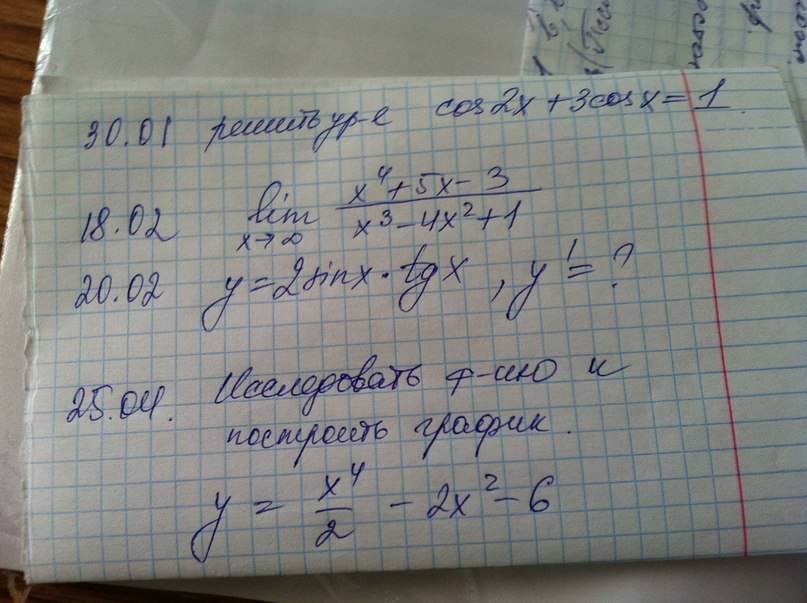 30.01 решить ур-е cos2x + 3cosx = 1
18.02 lim x→∞ (x⁴+5x-3)/(x³-4x²+1)
20.02 y = 2sinx · tgx, y' = ?
25.04. Исследовать ф-цию и
построить график.
y = x⁴/2 - 2x² - 6